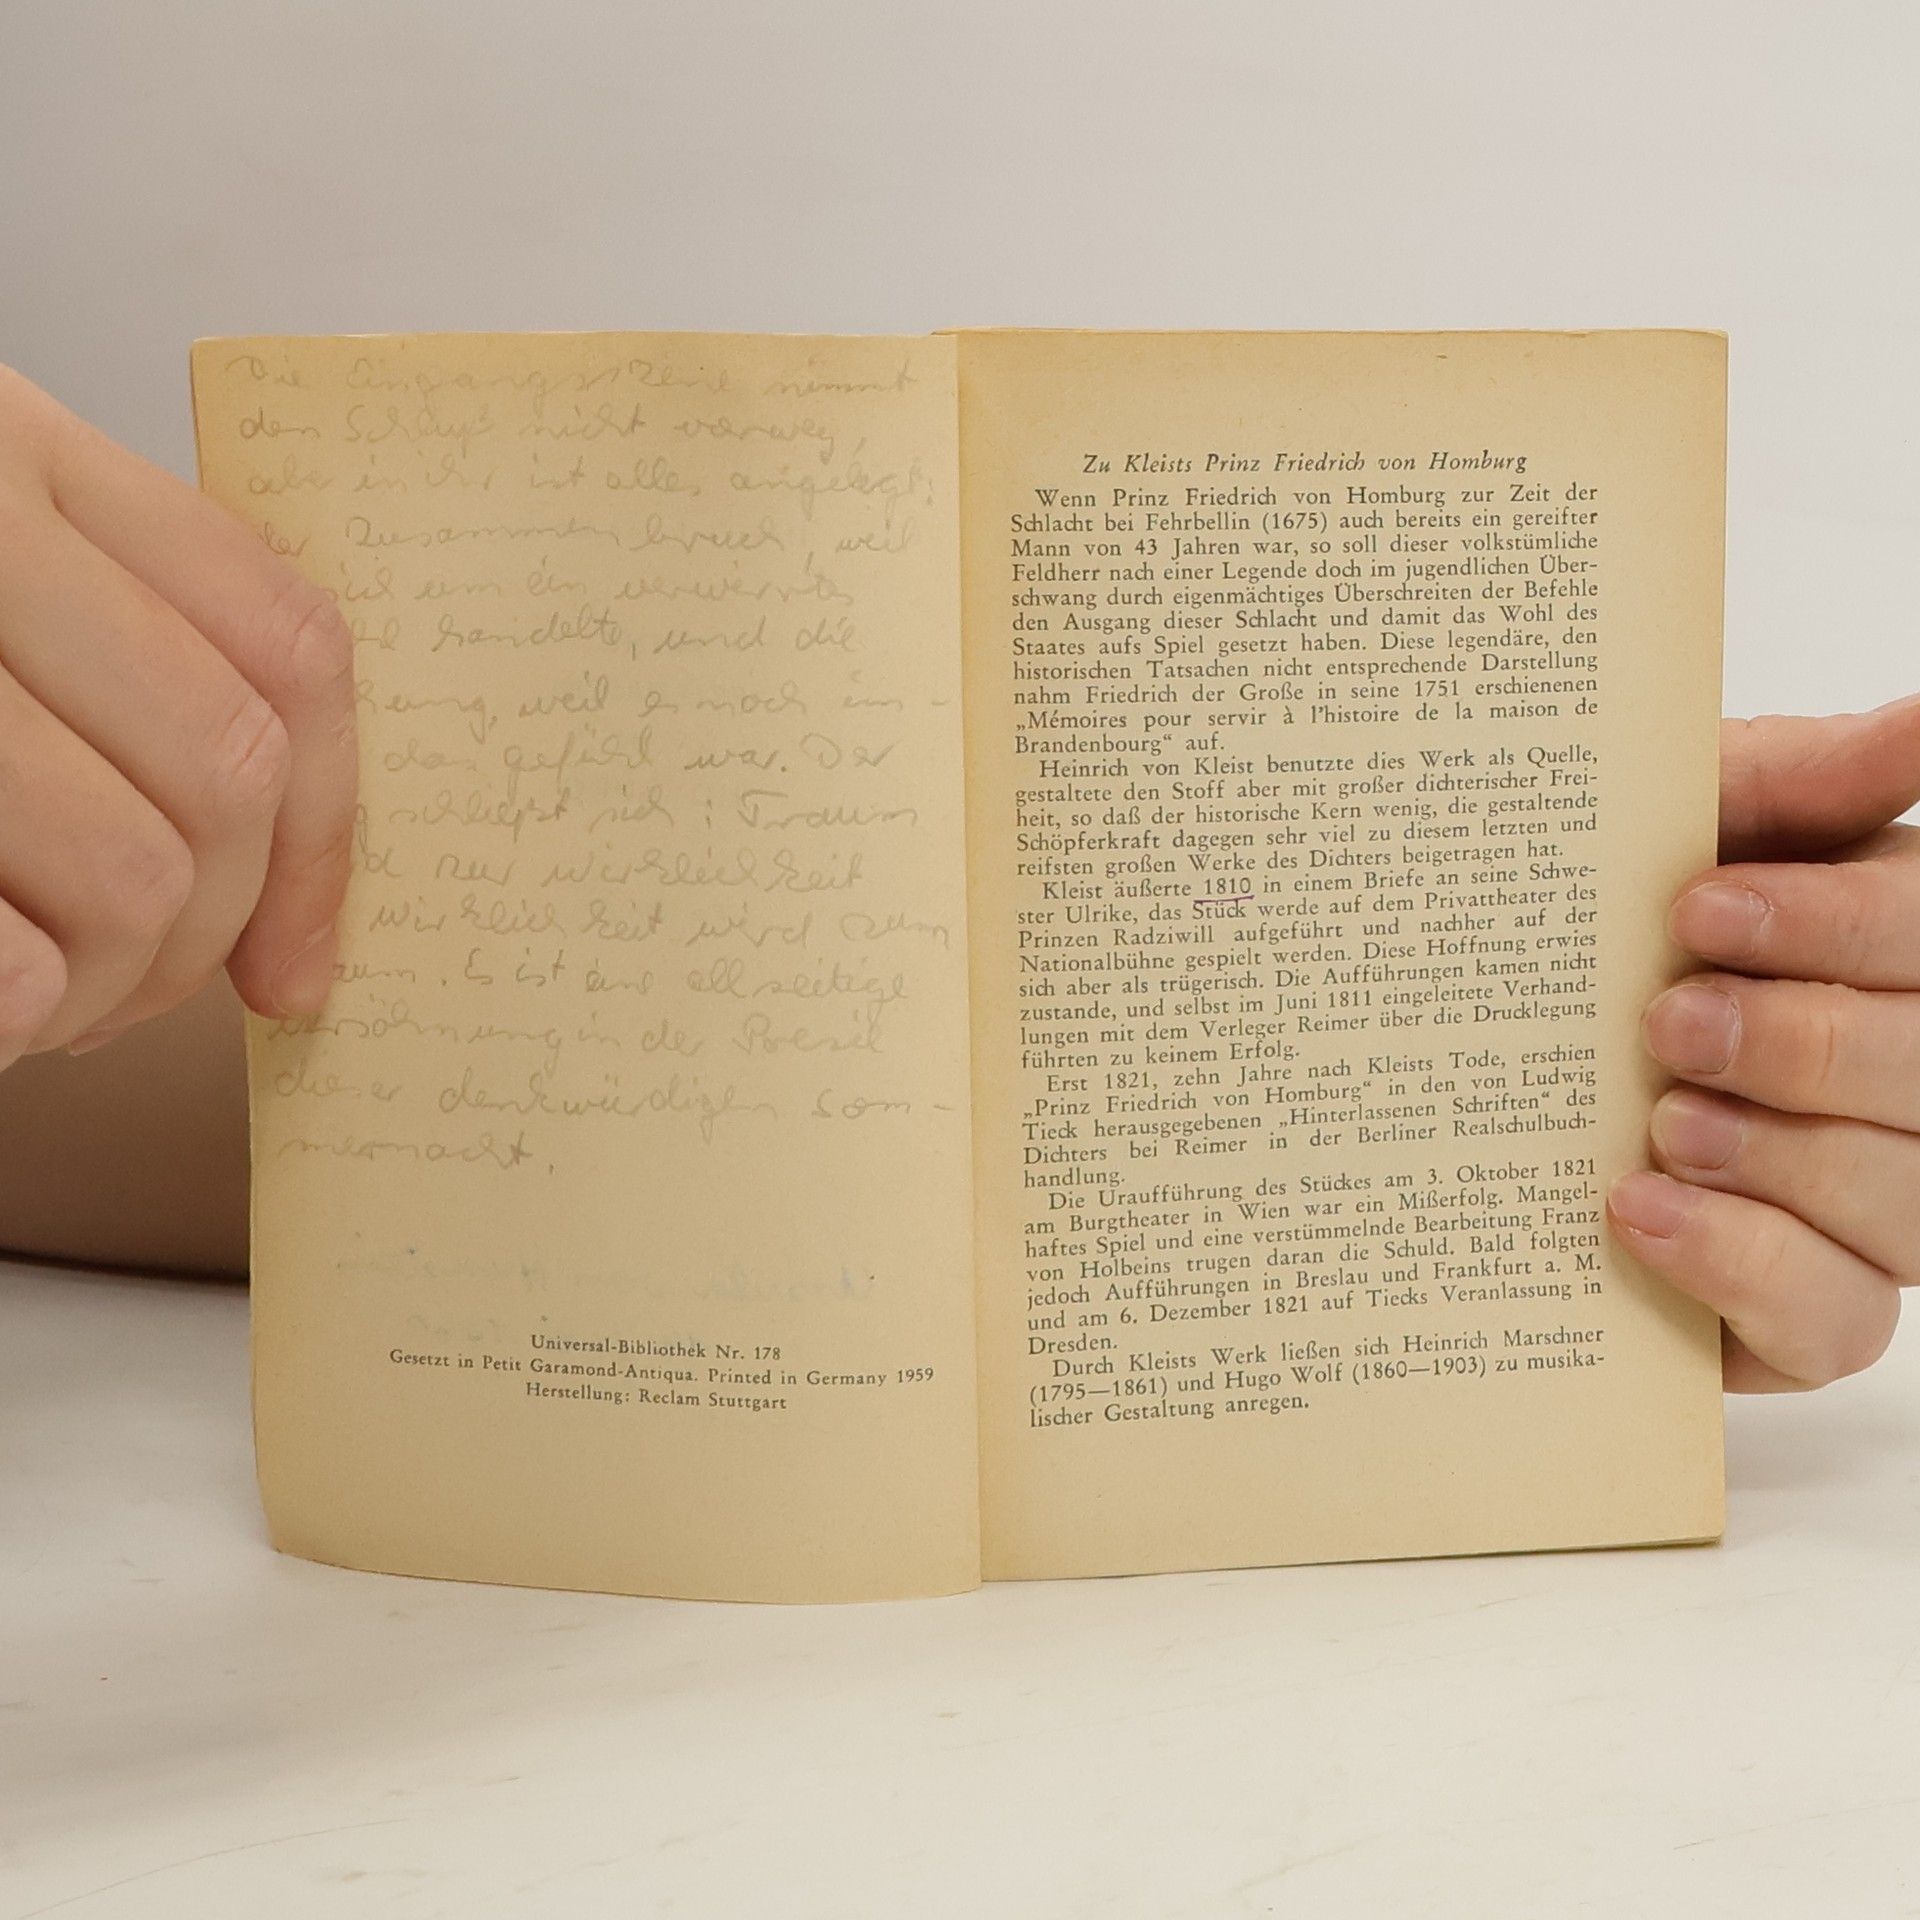 Die Eingangsszene nimmt
den Schluß nicht vorweg,
aber in ihr ist alles angelegt:
der Zusammenbruch, weil
sich um ein verwirrtes
handelte, und die
weil es noch im-
das gefühl war. Der
schließt sich: Traum
zur Wirklichkeit
Wirklichkeit wird zum
Es ist eine allseitige
Versöhnung in der Poesie
dieser denkwürdigen Som-
mernacht.
Universal-Bibliothek Nr. 178
Gesetzt in Petit Garamond-Antiqua. Printed in Germany 1959
Herstellung: Reclam Stuttgart
Zu Kleists Prinz Friedrich von Homburg
Wenn Prinz Friedrich von Homburg zur Zeit der
Schlacht bei Fehrbellin (1675) auch bereits ein gereifter
Mann von 43 Jahren war, so soll dieser volkstümliche
Feldherr nach einer Legende doch im jugendlichen Über-
schwang durch eigenmächtiges Überschreiten der Befehle
den Ausgang dieser Schlacht und damit das Wohl des
Staates aufs Spiel gesetzt haben. Diese legendäre, den
historischen Tatsachen nicht entsprechende Darstellung
nahm Friedrich der Große in seine 1751 erschienenen
„Mémoires pour servir à l'histoire de la maison de
Brandenbourg“ auf.
Heinrich von Kleist benutzte dies Werk als Quelle,
gestaltete den Stoff aber mit großer dichterischer Frei-
heit, so daß der historische Kern wenig, die gestaltende
Schöpferkraft dagegen sehr viel zu diesem letzten und
reifsten großen Werke des Dichters beigetragen hat.
Kleist äußerte 1810 in einem Briefe an seine Schwe-
ster Ulrike, das Stück werde auf dem Privattheater des
Prinzen Radziwill aufgeführt und nachher auf der
Nationalbühne gespielt werden. Diese Hoffnung erwies
sich aber als trügerisch. Die Aufführungen kamen nicht
zustande, und selbst im Juni 1811 eingeleitete Verhand-
lungen mit dem Verleger Reimer über die Drucklegung
führten zu keinem Erfolg.
Erst 1821, zehn Jahre nach Kleists Tode, erschien
„Prinz Friedrich von Homburg“ in den von Ludwig
Tieck herausgegebenen „Hinterlassenen Schriften“ des
Dichters bei Reimer in der Berliner Realschulbuch-
handlung.
Die Uraufführung des Stückes am 3. Oktober 1821
am Burgtheater in Wien war ein Mißerfolg. Mangel-
haftes Spiel und eine verstümmelnde Bearbeitung Franz
von Holbeins trugen daran die Schuld. Bald folgten
jedoch Aufführungen in Breslau und Frankfurt a. M.
und am 6. Dezember 1821 auf Tiecks Veranlassung in
Dresden.
Durch Kleists Werk ließen sich Heinrich Marschner
(1795—1861) und Hugo Wolf (1860—1903) zu musika-
lischer Gestaltung anregen.